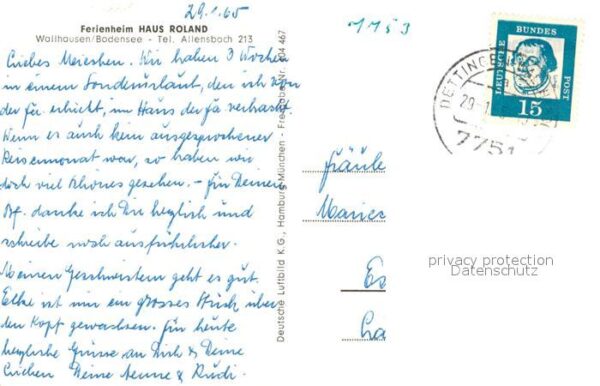 29.1.65
Ferienheim HAUS ROLAND
Wallhausen/Bodensee - Tel. Allensbach 213
Liebes Meischen. Wir haben 3 Wochen
in einem Sonderurlaub, den ich von
der Fa erhielt, im Haus der Fa verbracht
Wenn es auch kein ausgesprochener
Reisemonat war, so haben wir
doch viel Schönes gesehen. - Für Deinen
Bf. danke ich Dir herzlich und
schreibe noch ausführlicher.
Meinen Geschwistern geht es gut.
Elke ist mir ein grosses Stück über
den Kopf gewachsen. Für heute
herzliche Grüsse an Dich & Deine
Lieben Deine Hanne & Rudi.
Deutsche Luftbild K.G., Hamburg/München - Freigabe Nr.
1153
DEUTSCHE BUNDES POST
15
DETTINGEN
29.1.
7751
Fräule
privacy protection
Datenschutz
Es